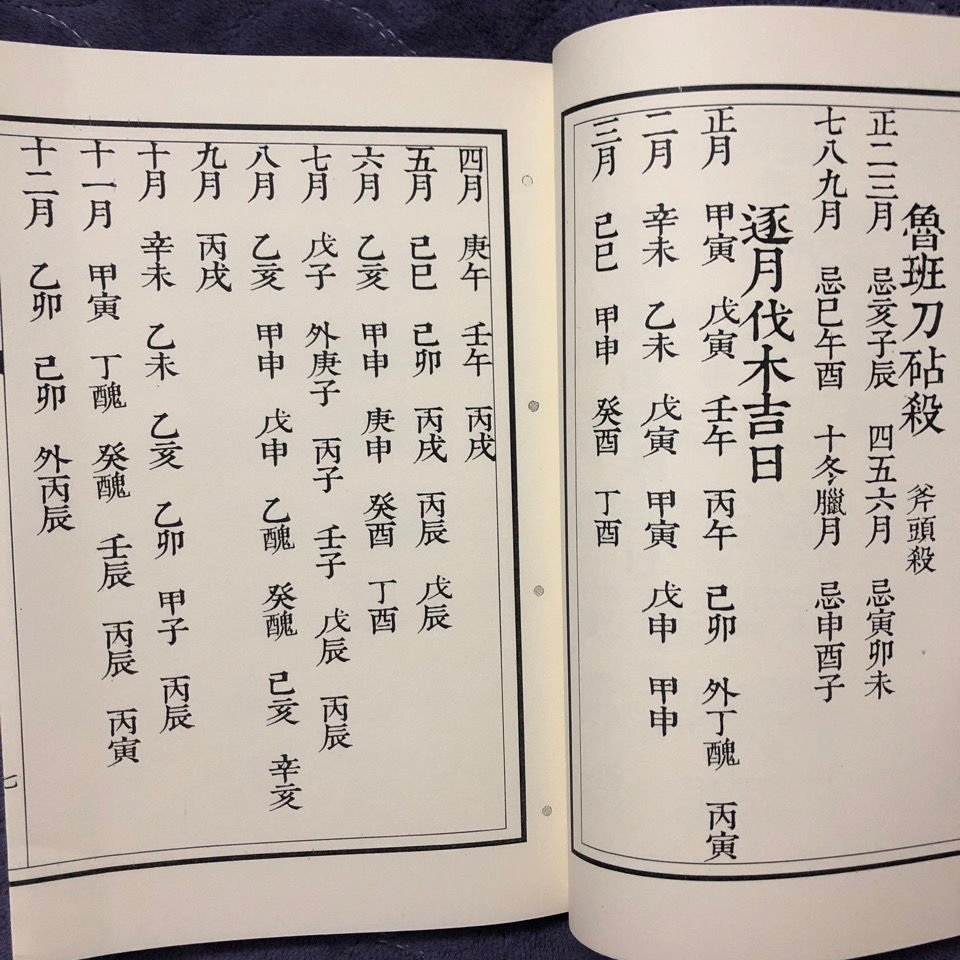 魯班刀砧殺 斧頭殺
正二三月 忌亥子辰 四五六月 忌寅卯未
七八九月 忌巳午酉 十冬臘月 忌申酉子
逐月伐木吉日
正月 甲寅 戊寅 壬午 丙午 己卯 外丁醜 丙寅
二月 辛未 乙未 戊寅 甲寅 戊申 甲申
三月 己巳 甲申 癸酉 丁酉
四月 庚午 壬午 丙戌
五月 己巳 己卯 丙戌 丙辰 戊辰
六月 乙亥 甲申 庚申 癸酉 丁酉
七月 戊子 外庚子 丙子 壬子 戊辰 丙辰
八月 乙亥 甲申 戊申 乙醜 癸醜 己亥 辛亥
九月 丙戌
十月 辛未 乙未 乙亥 乙卯 甲子 丙辰
十一月 甲寅 丁醜 癸醜 壬辰 丙辰 丙寅
十二月 乙卯 己卯 外丙辰
七